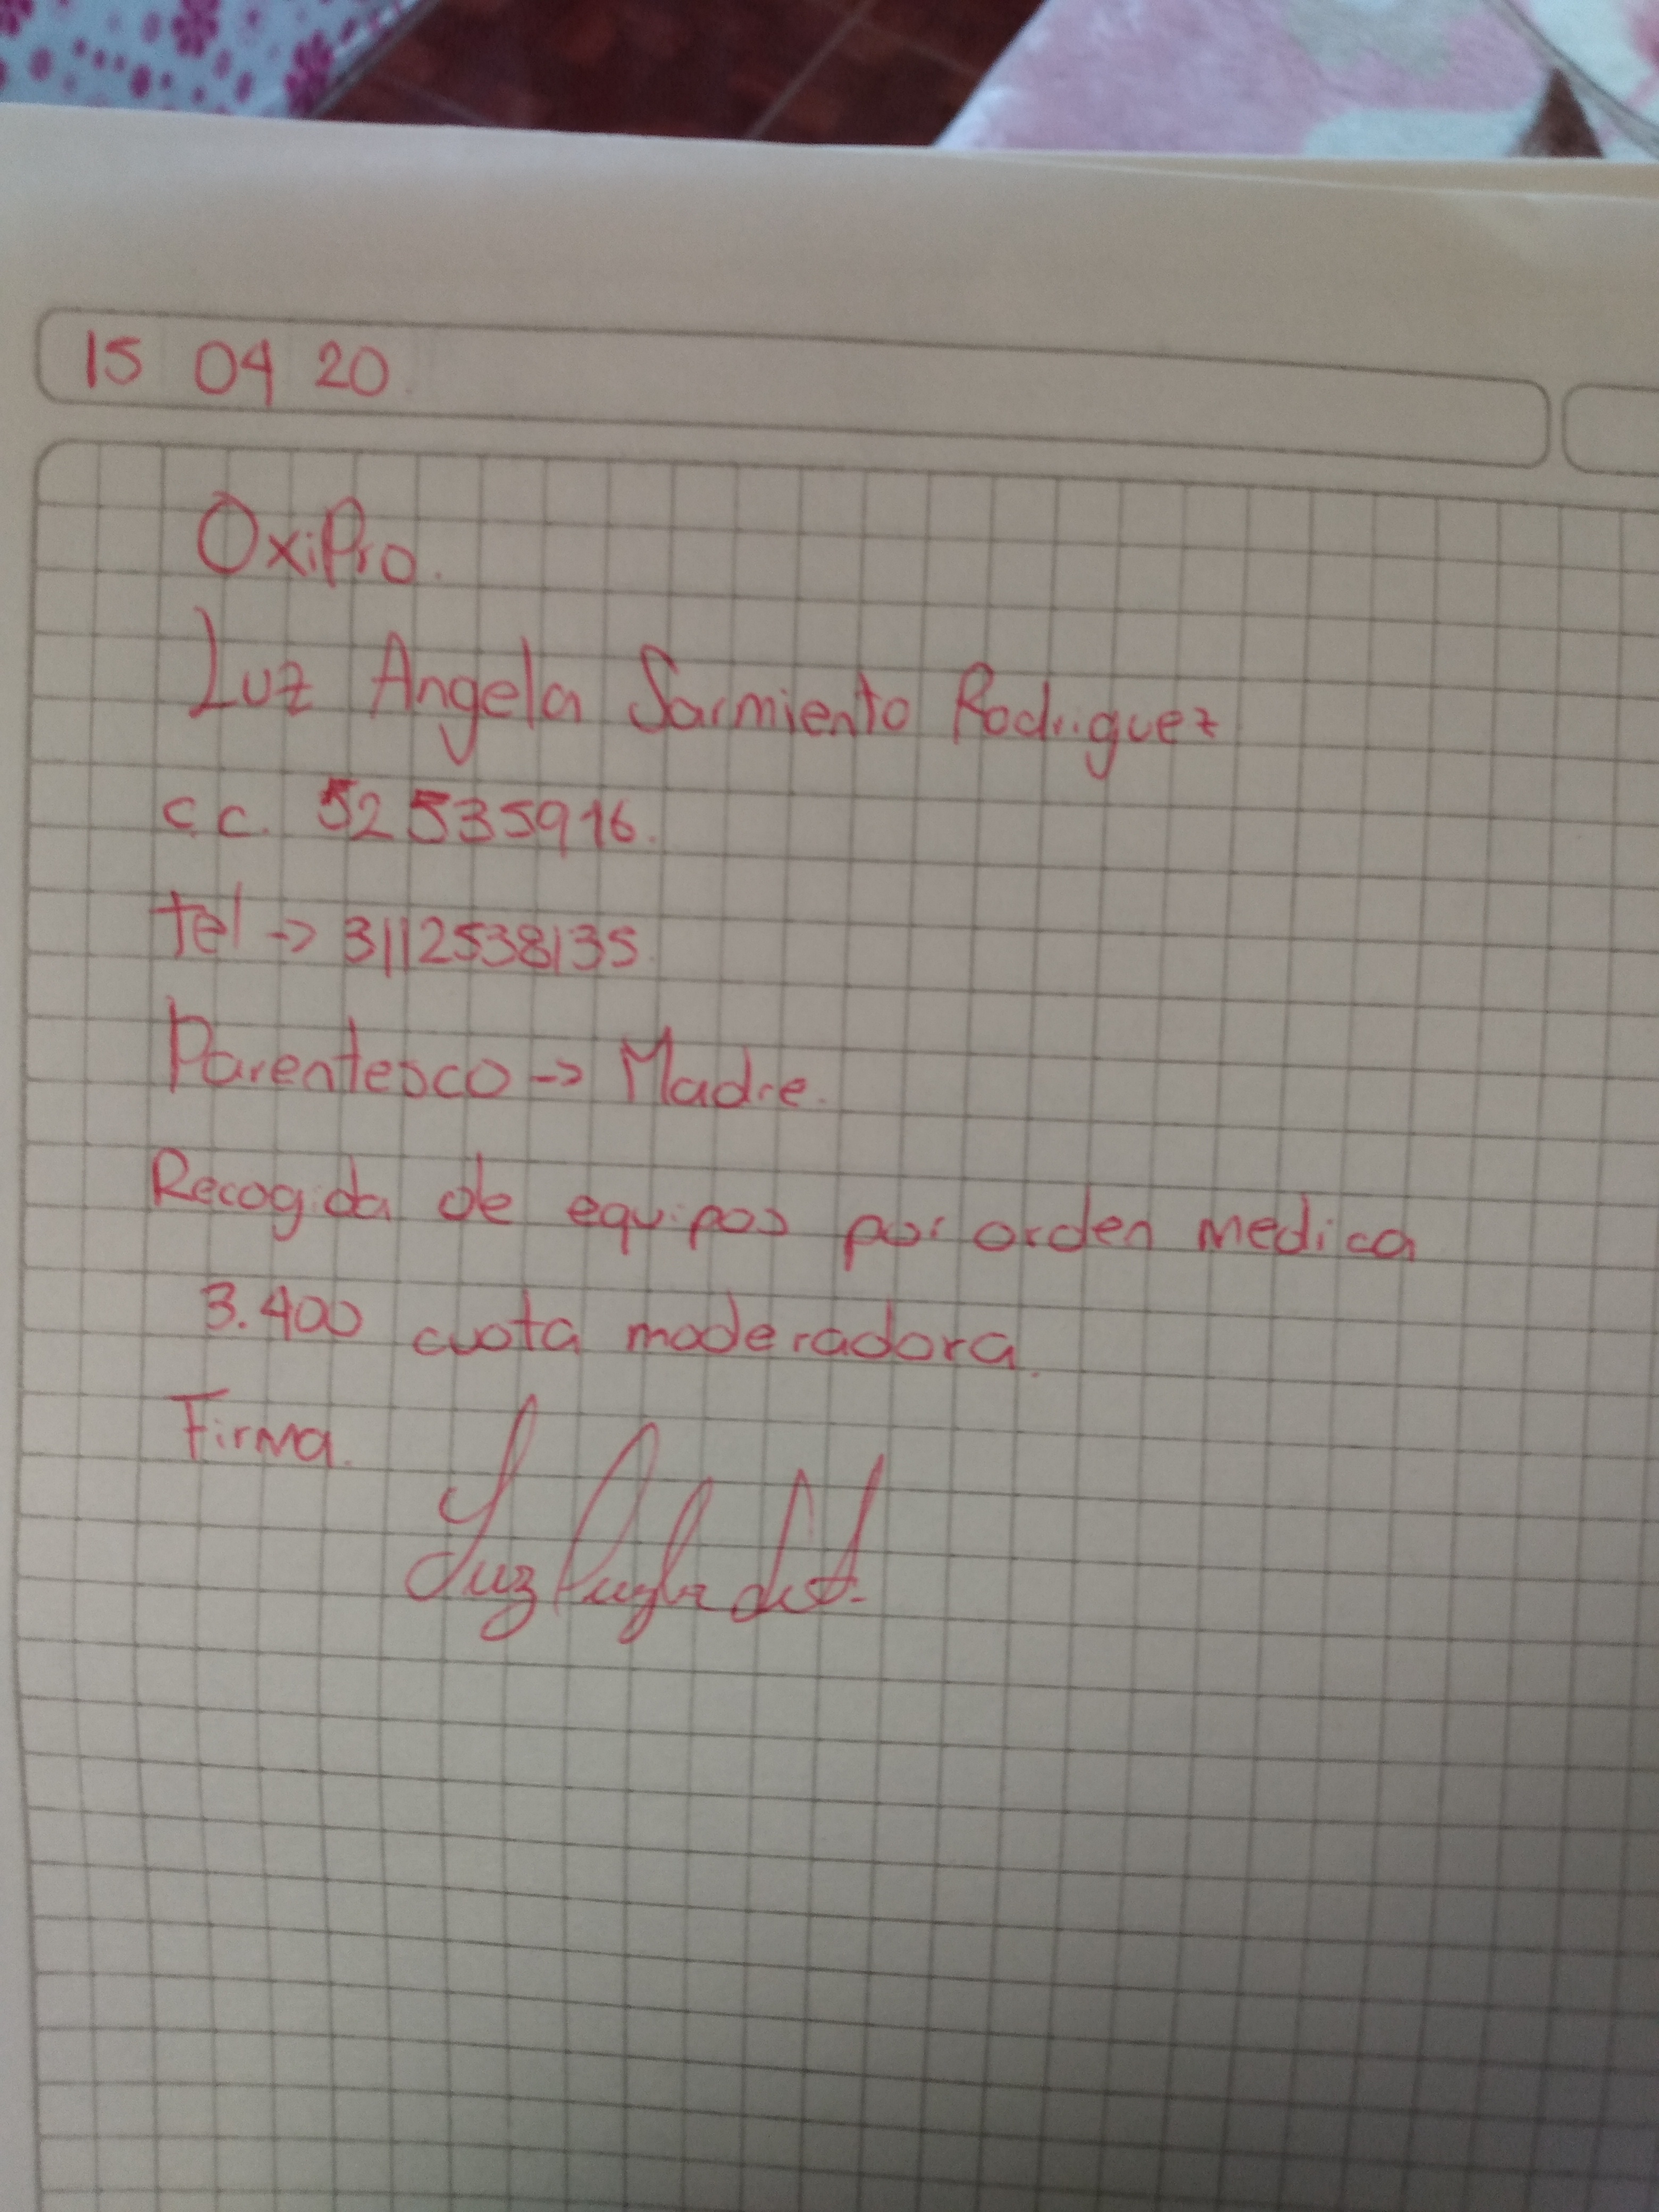 15 04 20.
OxiPro.
Luz Angela Sarmiento Rodriguez
c.c. 52 535916.
Tel -> 3112538135
Parentesco -> Madre.
Recogida de equipos por orden medica
3.400 cuota moderadora.
Firma.
Luz Angela